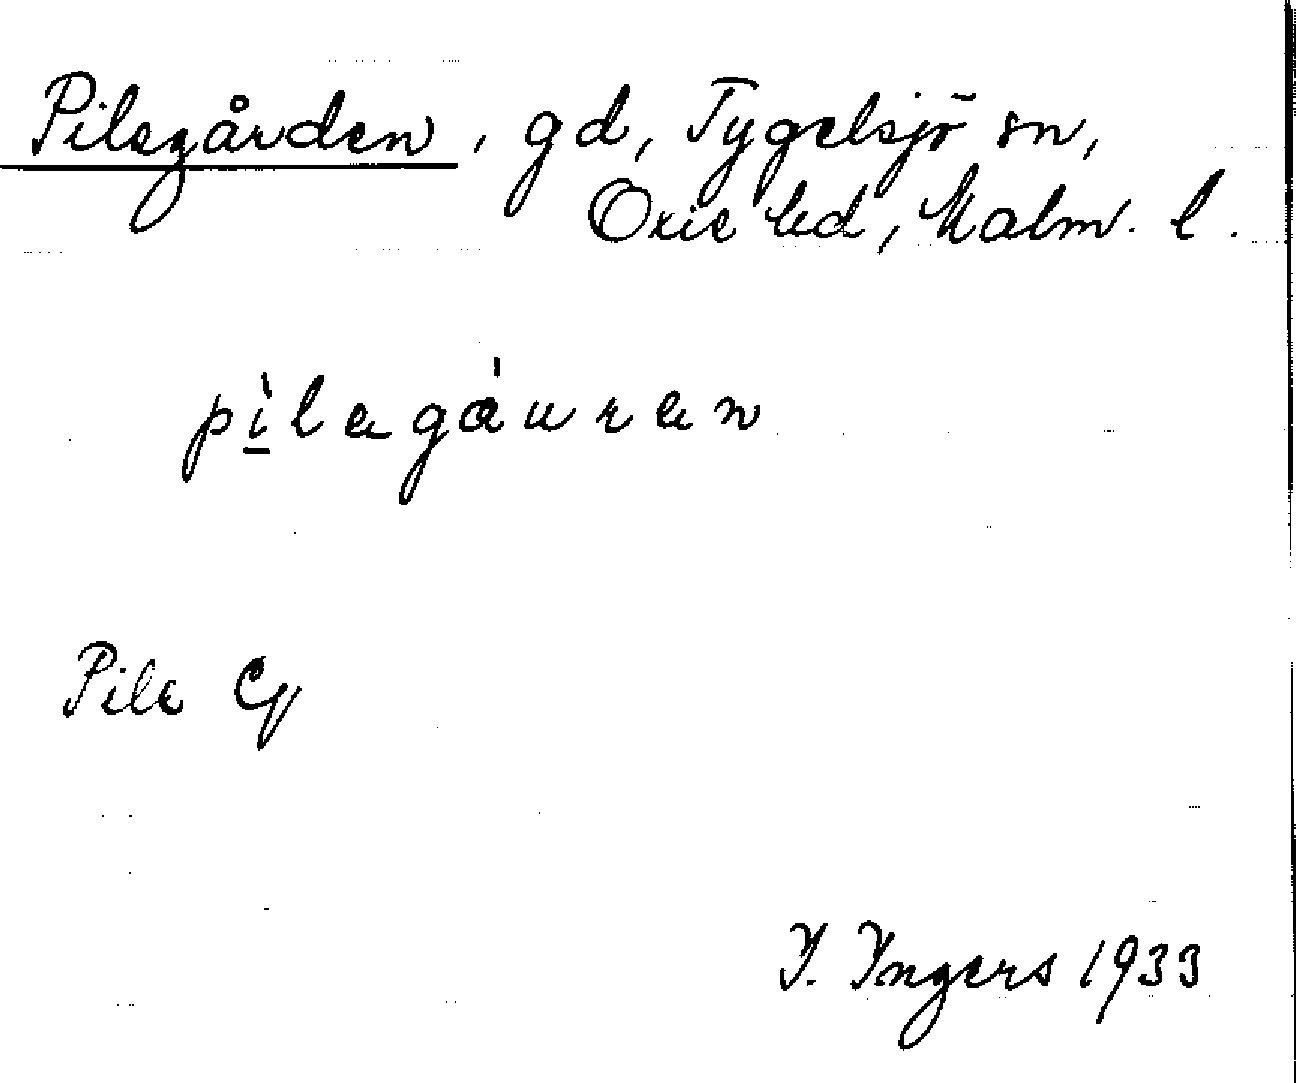 Pilegården, gd, Tygelsjö sn,
Oxie hd, Malm. l.
pìlagáuran
Pile
I. Ingers 1933